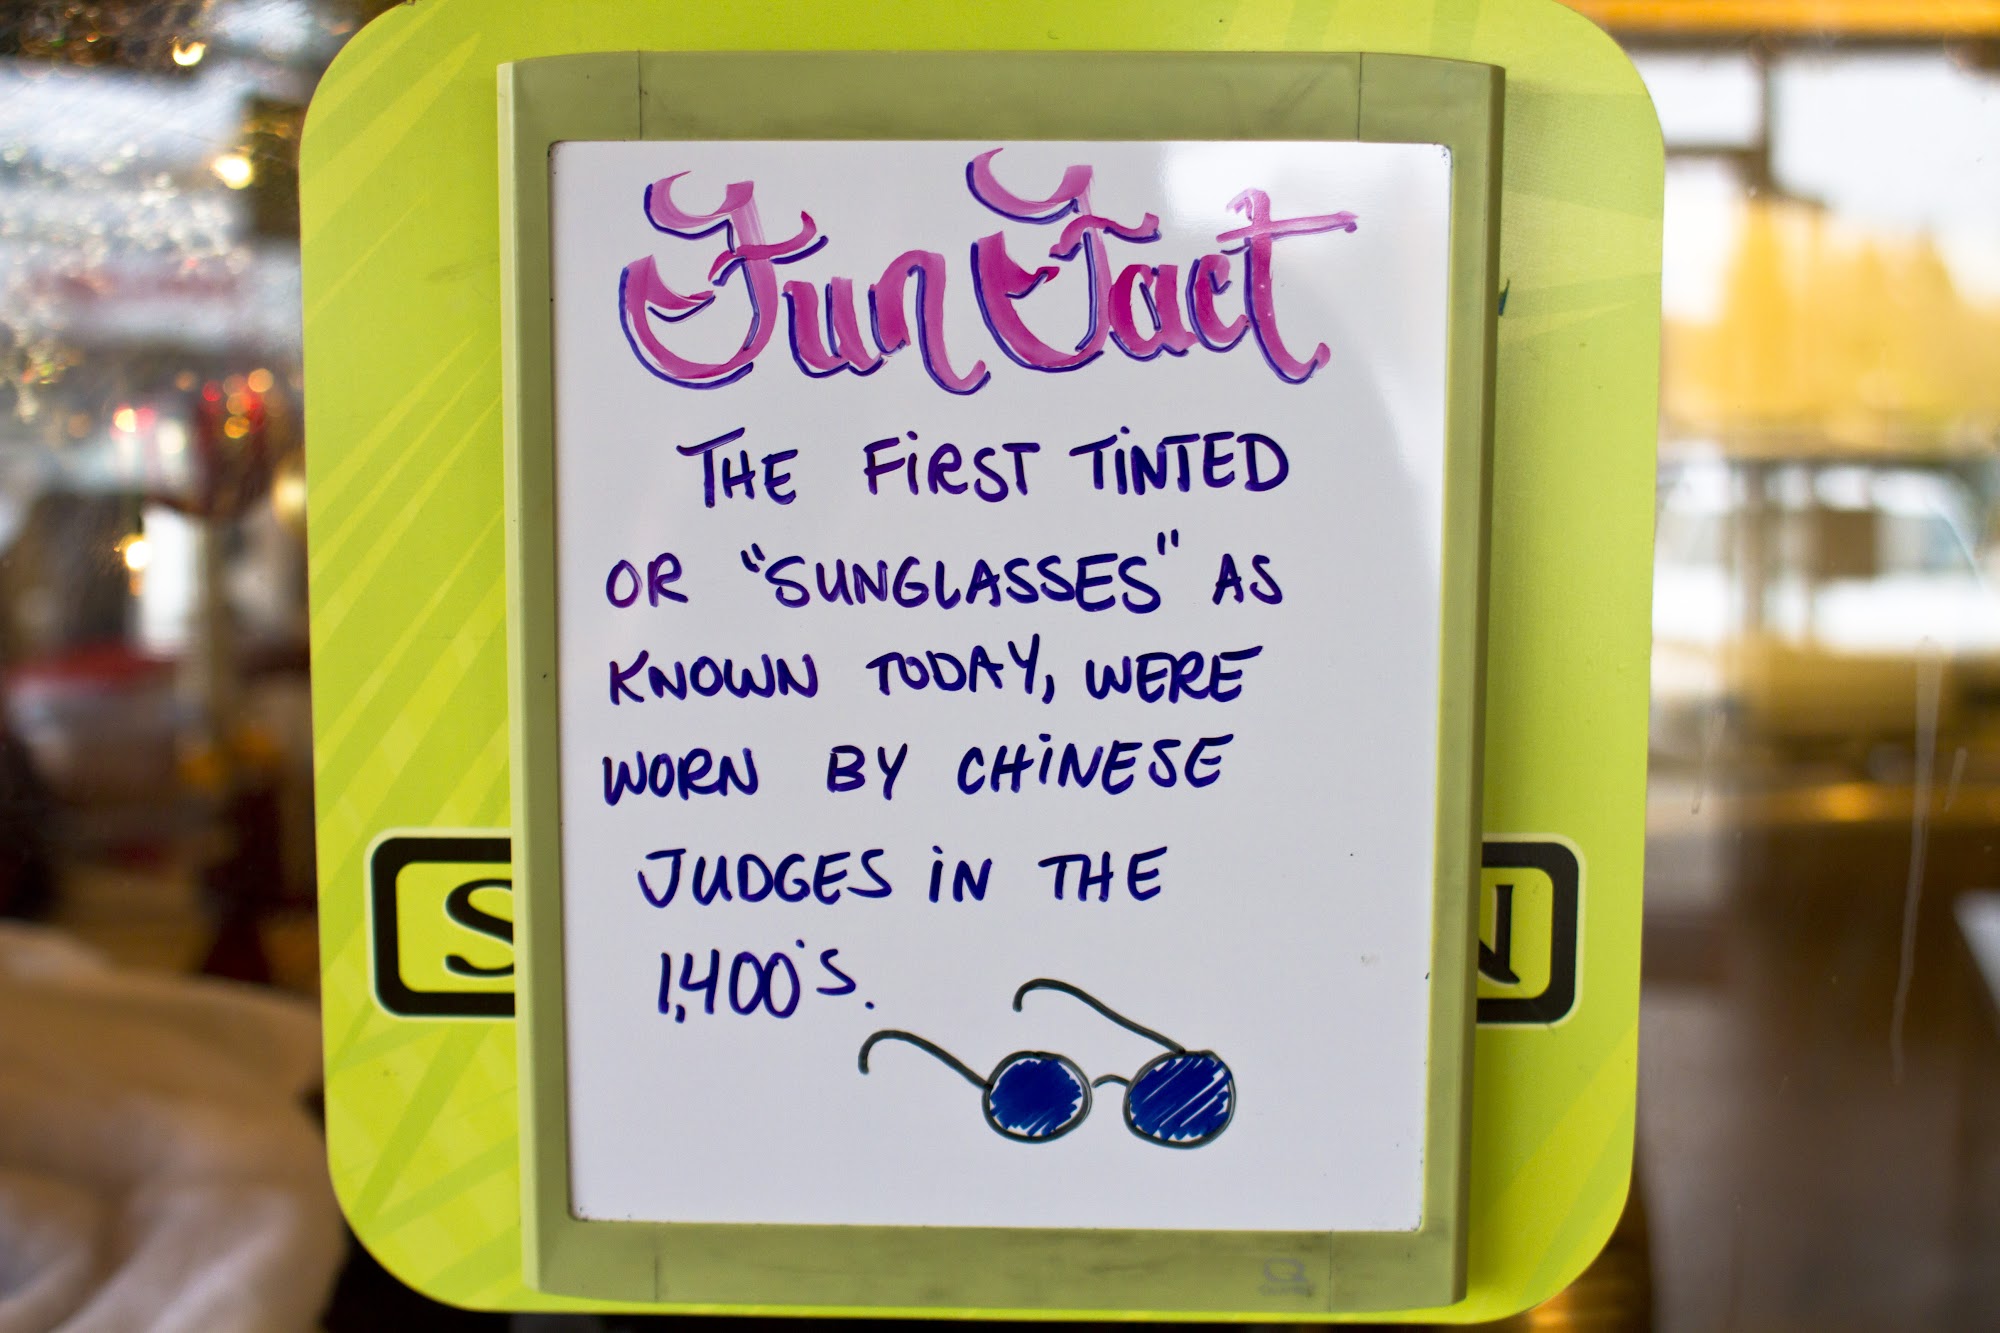 Fun Fact
THE FIRST TINTED
OR "SUNGLASSES" AS
KNOWN TODAY, WERE
WORN BY CHINESE
JUDGES IN THE
1,400'S.
S
N